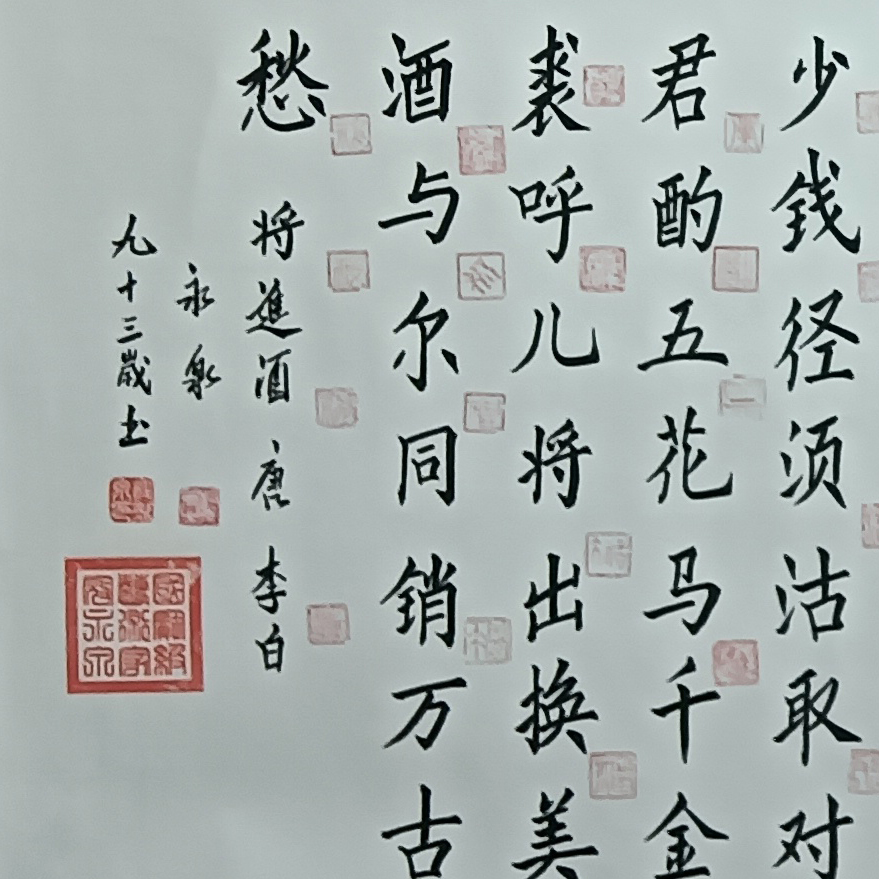 少钱径须沽取对
君酌五花马千金
裘呼儿将出换美
酒与尔同销万古
愁
将進酒 唐 李白
永泉
九十三歲书